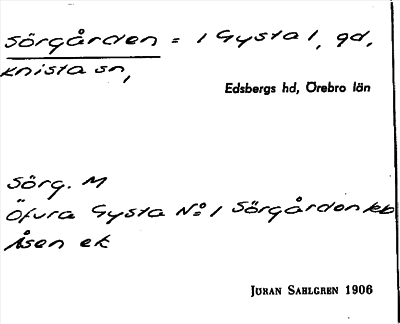 Sörgården = 1 Gysta 1, gd,
Knista sn,
Edsbergs hd, Örebro län
Sörg. M
Öfura Gysta No 1 Sörgården
Åsen ek
JÖRAN SAHLGREN 1906